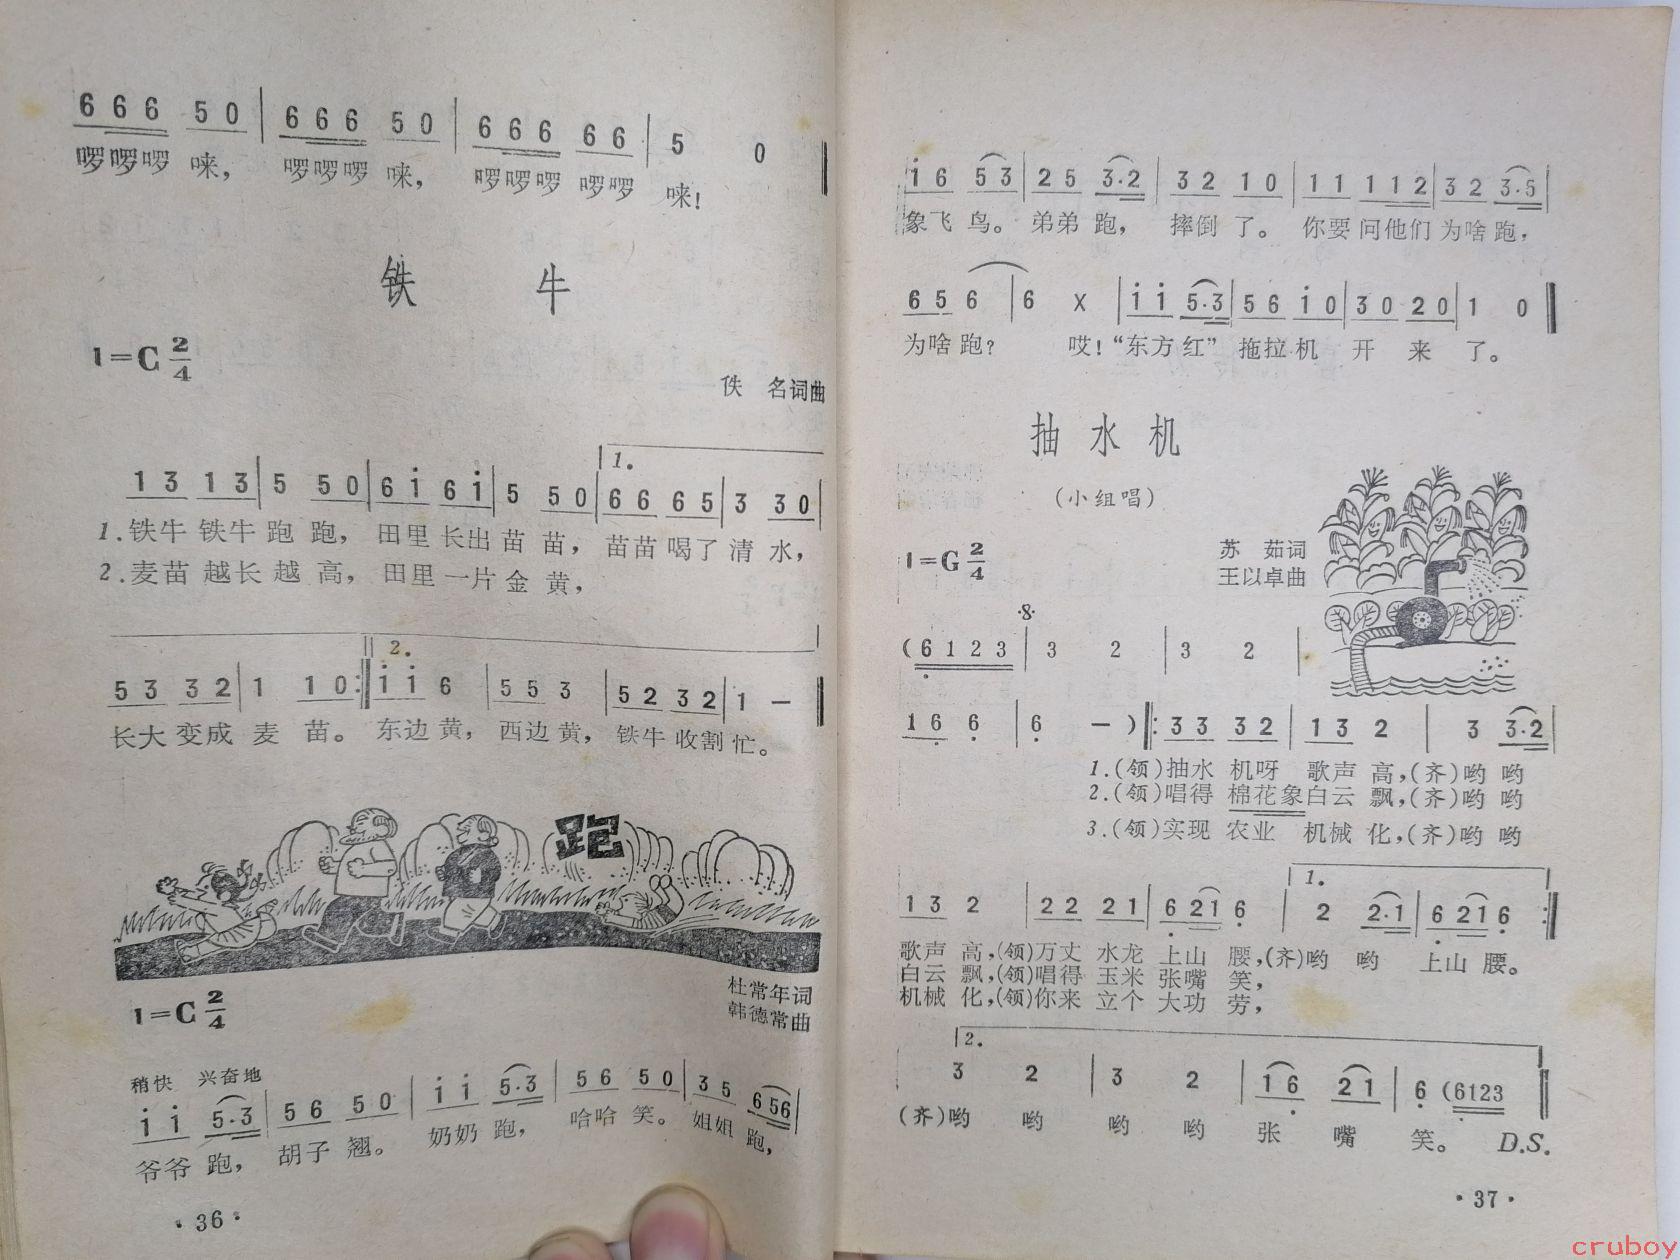 6 6 6 5 0 | 6 6 6 5 0 | 6 6 6 6 6 | 5 0 ‖
啰啰啰 唻， 啰啰啰 唻， 啰啰啰 啰啰 唻！
铁 牛
1=C 2/4
佚 名词曲
1.
1 3 1 3 | 5 5 0 | 6 i 6 i | 5 5 0 | 6 6 6 5 | 3 3 0 |
1.铁牛 铁牛 跑 跑， 田里 长出 苗 苗， 苗苗 喝了 清 水，
2.麦苗 越长 越 高， 田里 一片 金 黄，
2.
5 3 3 2 | 1 1 0 :‖ i i 6 | 5 5 3 | 5 2 3 2 | 1 — ‖
长大 变成 麦 苗。 东边 黄， 西边 黄， 铁牛 收割 忙。
跑
杜常年词
1=C 2/4
韩德常曲
稍快 兴奋地
i i 5·3 | 5 6 5 0 | i i 5·3 | 5 6 5 0 | 3 5 6 5 6 |
爷爷 跑， 胡子 翘。 奶奶 跑， 哈哈 笑。 姐姐 跑，
·36·
i 6 5 3 | 2 5 3·2 | 3 2 1 0 | 1 1 1 1 2 | 3 2 3·5 |
象飞 鸟。 弟弟 跑， 摔倒 了。 你要 问他们 为啥 跑，
6 5 6 | 6 X | i i 5·3 | 5 6 i 0 | 3 0 2 0 | 1 0 ‖
为啥 跑？ 哎！“东方 红” 拖拉 机 开 来 了。
抽 水 机
（小组唱）
苏 茹词
1=G 2/4
王以卓曲
·8·
( 6 1 2 3 | 3 2 | 3 2 |
1 6 6 | 6 — ) ‖: 3 3 3 2 | 1 3 2 | 3 3·2 |
1.(领)抽水 机呀 歌声 高，(齐)哟 哟
2.(领)唱得 棉花象 白云 飘，(齐)哟 哟
3.(领)实现 农业 机械 化，(齐)哟 哟
1.
1 3 2 | 2 2 2 1 | 6 2 1 6 | 2 2·1 | 6 2 1 6 :‖
歌声 高，(领)万丈 水龙 上山 腰，(齐)哟 哟 上山 腰。
白云 飘，(领)唱得 玉米 张嘴 笑，
机械 化，(领)你来 立个 大功 劳，
2.
3 2 | 3 2 | 1 6 2 1 | 6 (6123 ‖
(齐)哟 哟 哟 哟 张 嘴 笑。 D.S.
·37·
cruboy